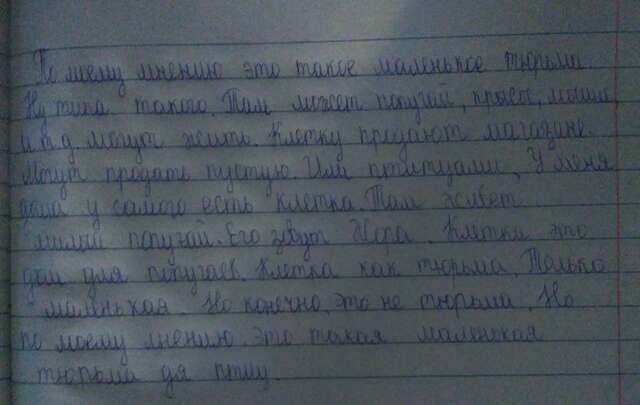 По моему мнению это такое маленькое тюрьма
Ну типа такого. Там может попугай, крысы, мыши,
и т д. могут жить. Клетку продают магазине.
Могут продать пустую. Или птитуами. У меня
дома у самого есть клетка. Там живет
милый попугай. Его зовут Жора. Клетки это
дом для попугаев. Клетка как тюрьма. Только
маленькая. Но конечно, это не тюрьма. Но
по моему мнению. это такая маленькая
тюрьма дя птиц.